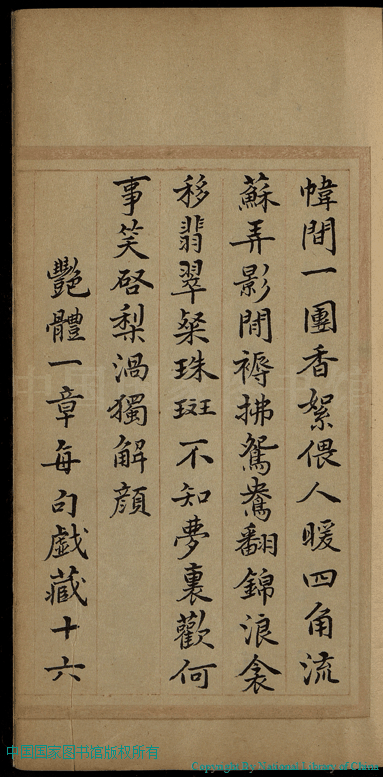 幃間一團香絮偎人暖四角流
蘇弄影閒褥拂鴛鴦翻錦浪衾
移翡翠粲珠斑不知夢裏歡何
事笑啓梨渦獨解顔
豔體一章每句戯藏十六
中国国家图书馆版权所有
Copyright By National Library of China